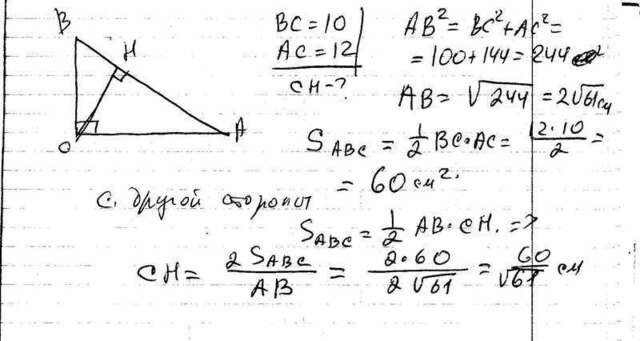 B
H
C
A
BC = 10
AC = 12
CH - ?
AB² = BC² + AC² =
= 100 + 144 = 244
AB = √244 = 2√61 см
S_ABC = 1/2 BC · AC = 12 · 10 / 2 =
= 60 см².
С. другой стороны
S_ABC = 1/2 AB · CH. =>
CH = 2 S_ABC / AB = 2 · 60 / 2√61 = 60 / √61 см